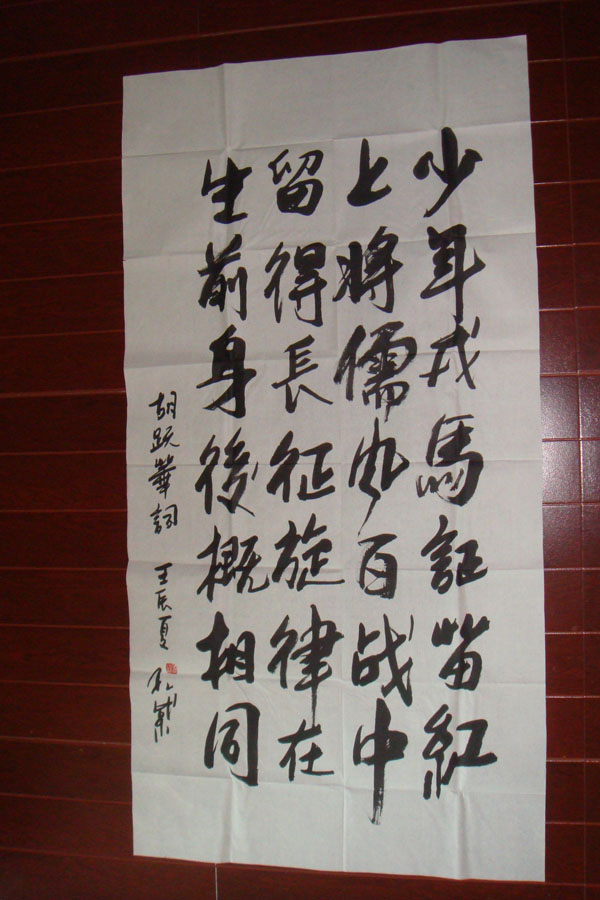 少年戎馬証苗紅
上將儒风百战中
留得長征旋律在
生前身後概相同
胡跃華詞 壬辰夏